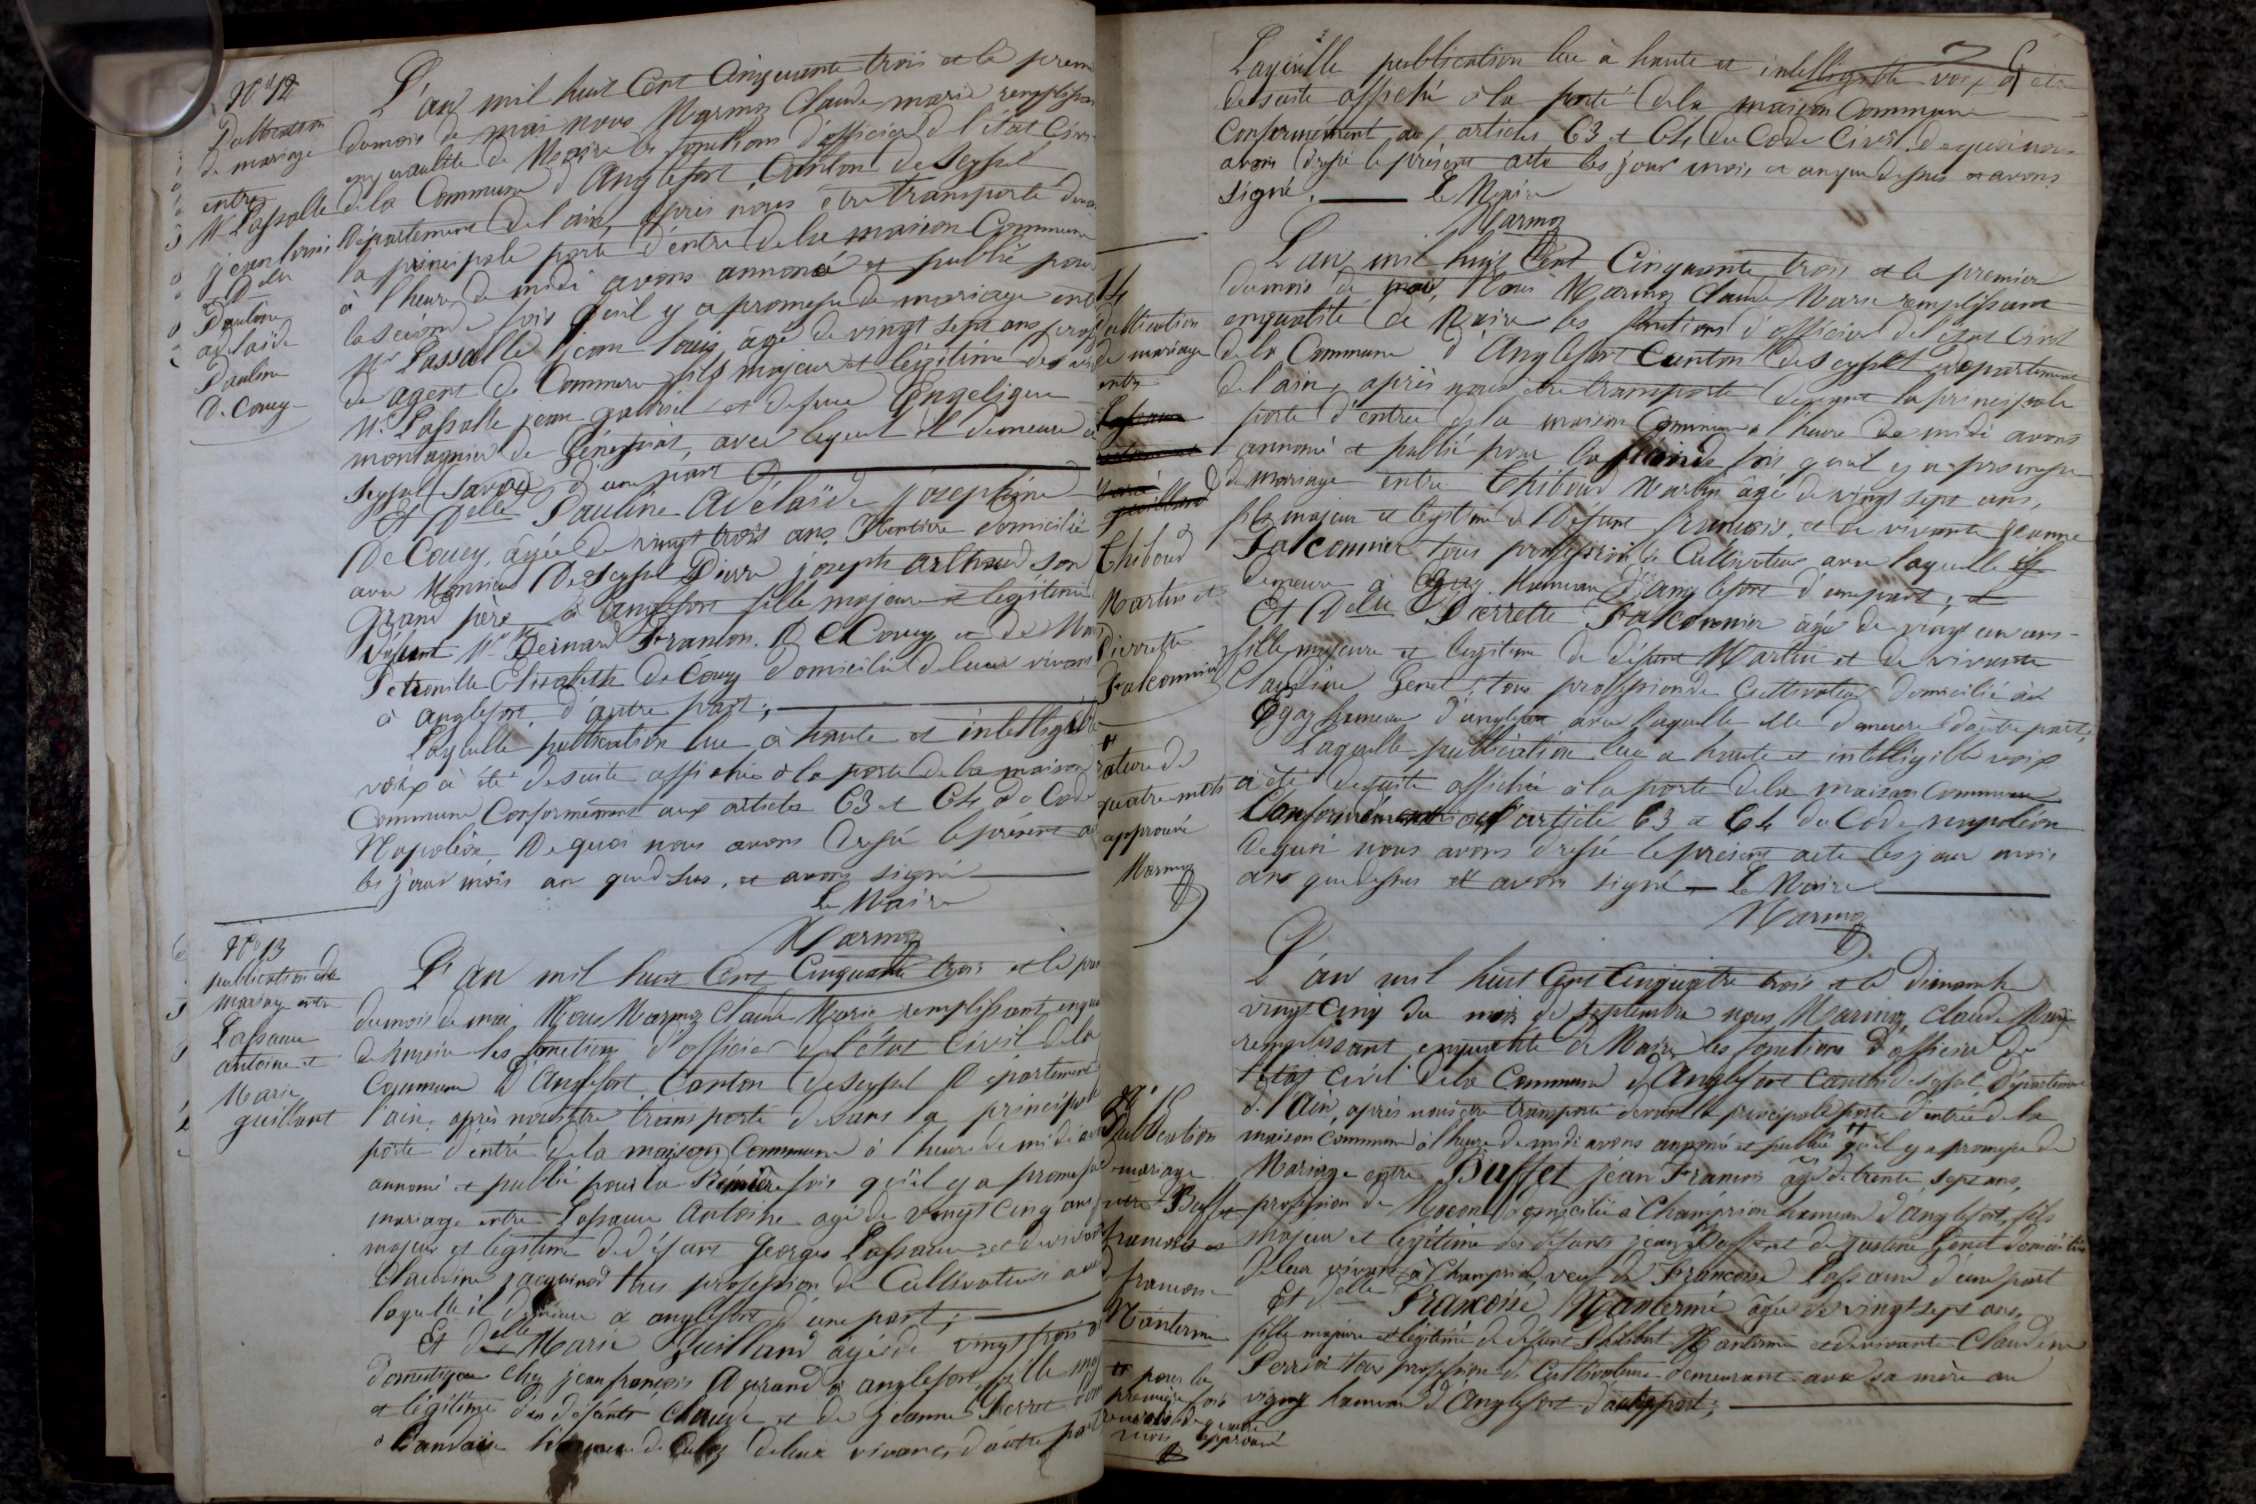 N° 12
Publication
de mariage
entre
Mr Lassalle
jean louis
et Delle
Pauline
adelaïde
Pauline
De Coucy
L'an mil huit Cent Cinquante trois et le prem
dumois de mai nous Marmoz Claude marie remplissan
enqualité de Maire les fonctions d'officier de l'état Civi
dela Commune d'Anglefort, Canton de Seyssel
Département del'ain, après nous être transporté devan
la principale porte d'entré dela maison Commune
à l'heure de midi avons annoncé et publié pour
la seconde fois qu'il y a promesse de mariage entr
Mr Lassalle jean louis âgé de vingt sept ans prof
de agent de Commerce fils majeur et légitime de
Mr Lassalle jean gabriel et defunte Engelique
montagnier de Génissiat, avec lequel il demeure à
Seyssel (Savoie) d'une part
Et Delle Pauline Adélaïde joséphine
De Coucy, âgée de vingt trois ans, Rentière domicilié
avec Monsieur De Seyssel Pierre joseph arthaud son
grand père à anglefort fille majeure et légitime
défunt Mr Bernard Franson De Coucy et de
Petronille Elisabeth de Coucy domicilié deleur vivant
à anglefort d'autre part;
Laquelle publication lue à haute et intelligible
voix à été desuite affichée à la porte de la maison
Commune Conformément aux articles 63 et 64 du Code
Napoléon, De quoi nous avons dressé leprésent ac
les jour mois an quedessus, et avons signé
Le Maire
Marmoz
N° 13
publication de
mariage entre
Lassaux
antoine et
Marie
guilland
L'an mil huit Cent Cinquante trois et le pre
dumois de mai Nous Marmoz Claude Marie remplissant enqua
de maire les fonctions d'officier de l'état Civil dela
Commune d'Anglefort Canton deSeyssel Département
l'ain, après nous être transporté devans la principale
porte d'entré dela maison Commune à l'heure de midi av
annoncé et publié pour la fois qu'il y a promesse
mariage entre Lassaux Antoine agé de vingt Cinq ans
majeur et legitime de défunt Georges Lassaux et de vivante
Claudine jacquinod tous profession de Cultivateurs avec
laquelle il demeure à anglefort d'une part;
Et Delle Marie Guilland agée de vingt trois
domestique chez jean françois Aperand à anglefort, fille maj
et légitime des défunts Claude et de jeanne Perret
à hameau de Culoz deleur vivance, d'autre part
Laquelle publication lue à haute et intelligible voix à été
desuite affiché à la porte dela maison Commune
Conformément aux articles 63 et 64 du Code Civil dequoi nous
avons dressé leprésent acte les jour mois et an que dessus et avons
signé. Le Maire
Marmoz
14
Publication
de mariage
entre
Thiboud
Martin et
Pierrette
Falconnier
rature de
quatre mots
approuvé
Marmoz
L'an mil huit Cent Cinquante trois et le premier
dumois de mai, Nous Marmoz Claude Marie remplissant
enqualité de Maire les fonctions d'officier del'état civil
dela Commune d'Anglefort Canton de Seyssel departement
del'ain, après nous etre transporté devant la principale
porte d'entrée dela maison Commune à l'heure de midi avons
annoncé et publié pour la fois qu'il y a promesse
de mariage entre Thiboud Martin âgé de vingt sept ans,
fils majeur et légitime de Défunt françois, et de vivante Jeanne
Falconnier tous profession de Cultivateur avec laquelle il
demeure à hameau d'anglefort d'une part; et
Et Delle Pierrette Falconnier âgée de vingt un ans
fille majeure et legitime de défunt Martin et de vivante
Claudine Genet, tous profession de Cultivateurs domicilié au
hameau d'anglefort avec laquelle elle demeure d'autre part,
Laquelle publication lue a haute et intelligible voix
à été desuite affichée à la porte dela maison Commune
Conformément aux article 63 et 64 du Code napoléon
dequoi nous avons dressé leprésent acte les jour mois
an quedessus et avons signé Le Maire
Marmoz
Publication
de mariage
entre Buffet
francois et
francoise
Nanterme
pour la
première fois
renvoi de quatre
mots approuvé
L'an mil huit Cent Cinquante trois et le Dimanche
vingt Cinq du mois de septembre nous Marmoz Claude Marie
remplissant enqualité de Maire les fonctions d'officier de
l'état civil dela Commune d'Anglefort Canton de Seyssel, Département
de l'Ain, après nous être transporté devant la principale porte d'entrée de la
maison commune à l'heure de midi avons annoncé et publié qu'il y a promesse de
Mariage entre Buffet jean Francois âgé de trente sept ans,
profession de Macon domicilié à Champrion hameau d'anglefort, fils
majeur et légitime des défunts jean Buffet et de justine Genet domiciliés
deleur vivant à Champrion, veuf de Francoise Lassaux d'une part
Et Delle Francoise Nanterme âgée de vingt sept ans,
fille majeure et légitime de défunt Nanterme et de vivante Claudine
Perret tous profession de Cultivateurs demeurant avec sa mère au
vigny hameau d'Anglefort d'autre part;